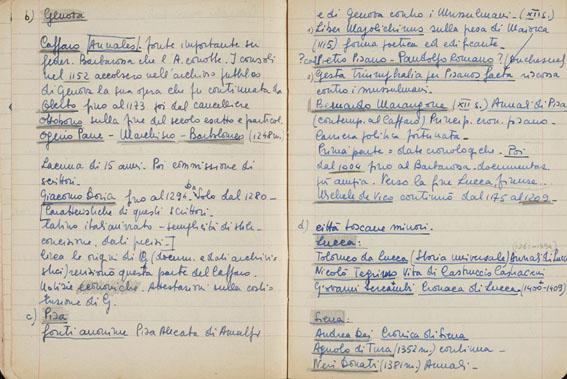 b) Genova
Caffaro [Annales] fonte importante su
feder. Barbarossa che l'A. conobbe. I consoli
nel 1152 accolsero nell'archivio pubblico
di Genova la sua opera che fu continuata da
Oberto fino al 1173 poi dal cancelliere
Ottobono sulla fine del secolo esatto e particol.
Ogerio Pane - Marchisio - Bartolomeo (1248 m)
Lacuna di 15 anni. Poi commissione di
scrittori.
Giacomo Doria fino al 1294. Solo dal 1280 -
[Caratteristiche di questi scrittori.
Latino italianizzato - semplicità di stile -
concisione, dati precisi]
Circa le origini di G. (docum. e dati archivi
stici) revisionò questa parte del Caffaro.
Notizie economiche. Attestazioni sulla costi-
tuzione di G.
c) Pisa
fonti anonime Pisa Alleata di Amalfi
e di Genova contro i Mussulmani - (XII s.)
Liber Majolichinus sulla presa di Maiorca
(1115) forma poetica ed edificante.
Pietro Pisano - Pandolfo Romano?
Gesta Triumphalia per Pisanos facta riscossa
contro i mussulmani.
Bernardo Marangone (XII s.) Annali di Pisa
(contemp. al Caffaro) Princip. cron. pisano.
Carriera politica fortunata.
Prima parte = date cronologiche. Poi
dal 1004 fino al Barbarossa. documentaz.
più ampia. Verso la fine Lucca, Firenze
Michele de Vico continuò dal 1175 al 1209.
d) città toscane minori.
Lucca:
Tolomeo da Lucca (Storia universale) Annali di Lucca
Nicolò Tegrimo Vita di Castruccio Castracani
Giovanni Sercambi Cronaca di Lucca (1400-1409)
Siena:
Andrea Dei Cronica di Siena
Agnolo di Tura (1352 m.) continua -
Neri Donati (1381 m.) Annali -